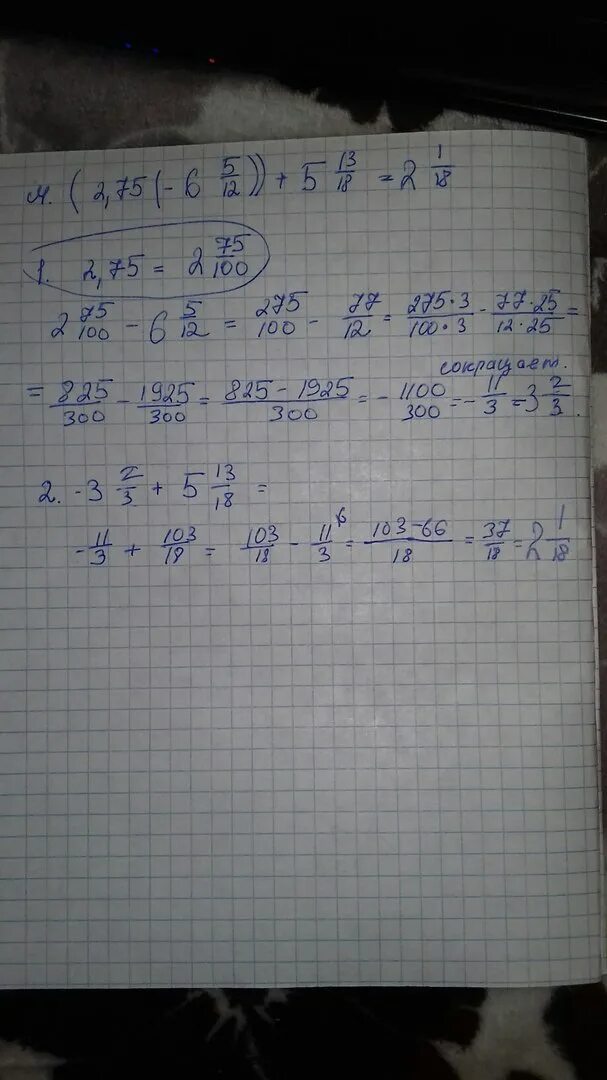 м. (2,75 (- 6 5/12)) + 5 13/18 = 2 1/18
1. 2,75 = 2 75/100
2 75/100 - 6 5/12 = 275/100 - 77/12 = 275·3/100·3 - 77·25/12·25 =
сокращает.
= 825/300 - 1925/300 = 825 - 1925/300 = - 1100/300 = - 11/3 = 3 2/3.
2. -3 2/3 + 5 13/18 =
- 11/3 + 103/18 = 103/18 - 11/3 6 = 103-66/18 = 37/18 = 2 1/18